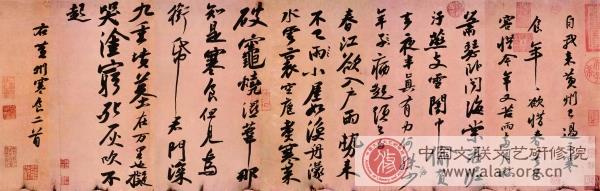 自我來黃州已過三寒
食年年欲惜春春去不
容惜今年又苦雨兩月秋
蕭瑟臥聞海棠花泥
汙燕支雪闇中偷負
去夜半真有力何殊少
年子病起頭已白
春江欲入戶雨勢來
不已雨小屋如漁舟濛濛
水雲裏空庖煮寒菜
破竈燒溼葦那
知是寒食但見烏
銜帋君門深
九重墳墓在萬里也擬
哭塗窮死灰吹不
起
右黃州寒食二首
中国文联文艺研修院